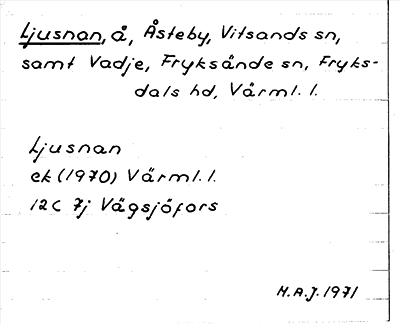 Ljusnan, å, Åsteby, Vitsands sn,
samt Vadje, Fryksände sn, Fryks-
dals hd, Värml. l.
Ljusnan
ek (1970) Värml. l.
12C 7j Vägsjöfors
H.A.J. 1971